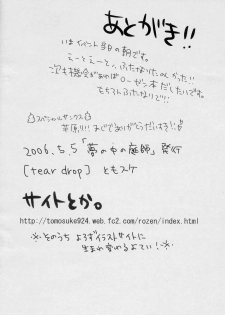 あとがき!!
いまイベント当日の朝です。
えーとえーとっ、ふたなりたのしかった!!
次も機会があればローゼン本だしたいです。
もちろんふたなりで!!
スペシャルサンクス
まじでありがとうだいすき!!
2006.5.5「夢の中の庭師」発行
[tear drop] ともスケ
サイトとか。
http://tomosuke924.web.fc2.com/rozen/index.html
※そのうち よろずイラストサイトに
生まれ変わるよてい!※